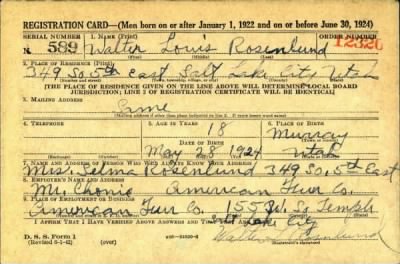 REGISTRATION CARD—(Men born on or after January 1, 1922 and on or before June 30, 1924)
SERIAL NUMBER 1. NAME (Print) ORDER NUMBER
N 589 Walter Louis Rosenlund 12320
(First) (Middle) (Last)
2. PLACE OF RESIDENCE (Print)
349 So. 5th East Salt Lake City Utah
(Number and street) (Town, township, village, or city) (County) (State)
[THE PLACE OF RESIDENCE GIVEN ON THE LINE ABOVE WILL DETERMINE LOCAL BOARD
JURISDICTION; LINE 2 OF REGISTRATION CERTIFICATE WILL BE IDENTICAL]
3. MAILING ADDRESS
Same
(Mailing address if other than place indicated on line 2. If same insert word same)
4. TELEPHONE 5. AGE IN YEARS 6. PLACE OF BIRTH
18 Murray
DATE OF BIRTH
May 28 1924 Utah
7. NAME AND ADDRESS OF PERSON WHO WILL ALWAYS KNOW YOUR ADDRESS
Mrs. Selma Rosenlund 349 So. 5th East
8. EMPLOYER'S NAME AND ADDRESS
Mr. Chonic American Fur Co.
9. PLACE OF EMPLOYMENT OR BUSINESS
American Fur Co. 155 W. So. Temple
Salt Lake City
I AFFIRM THAT I HAVE VERIFIED ABOVE ANSWERS AND THAT THEY ARE TRUE.
D. S. S. Form 1
(Revised 6-1-42) (over) Walter Rosenlund
(Registrant's signature)